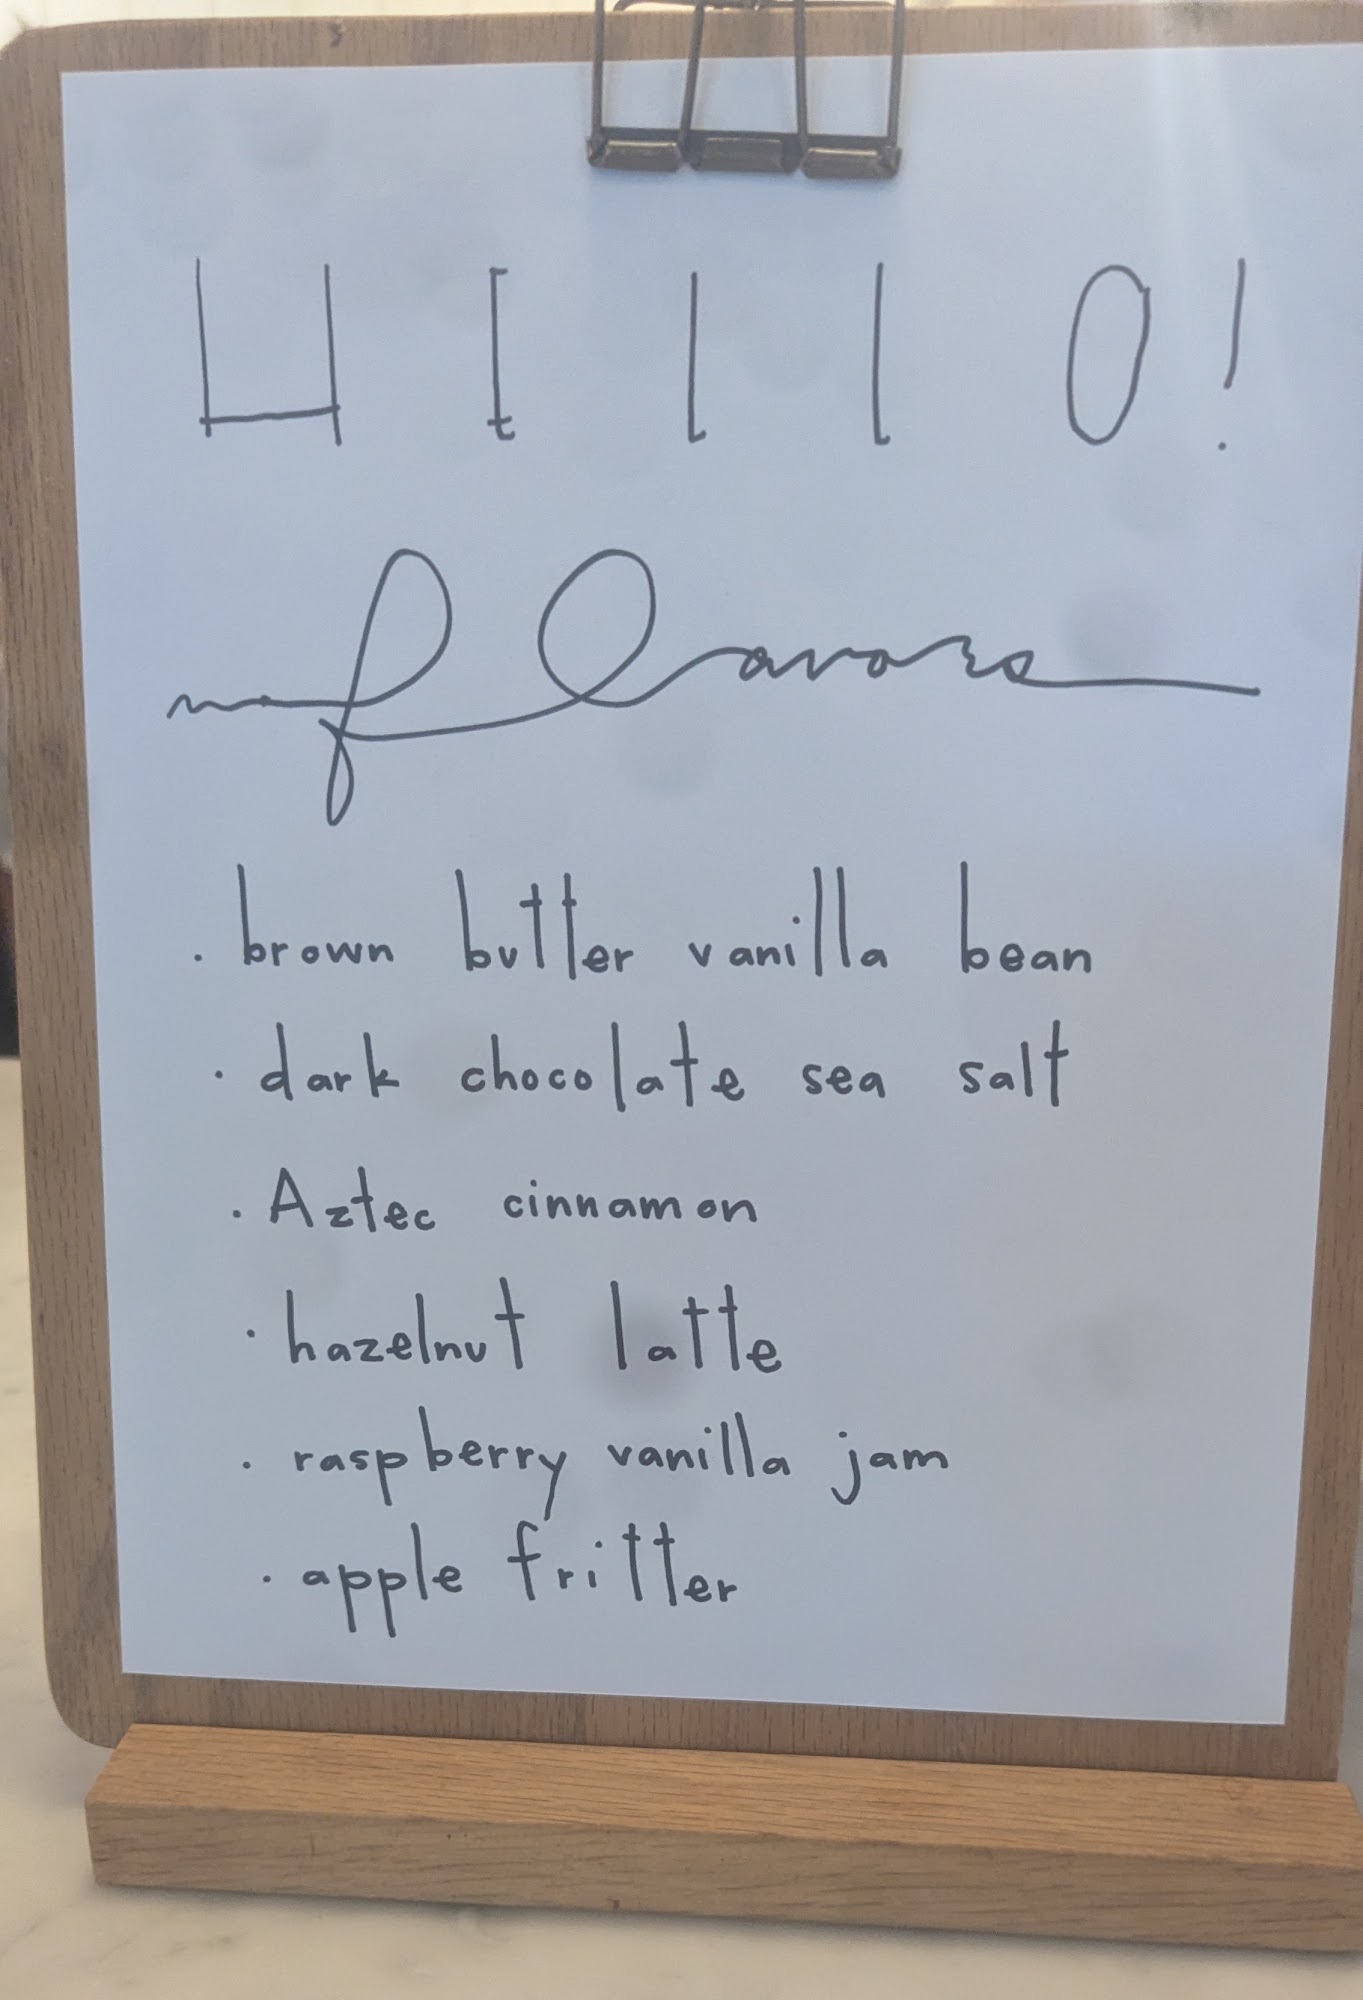 HELLO!
flavors
· brown butter vanilla bean
· dark chocolate sea salt
· Aztec cinnamon
· hazelnut latte
· raspberry vanilla jam
· apple fritter